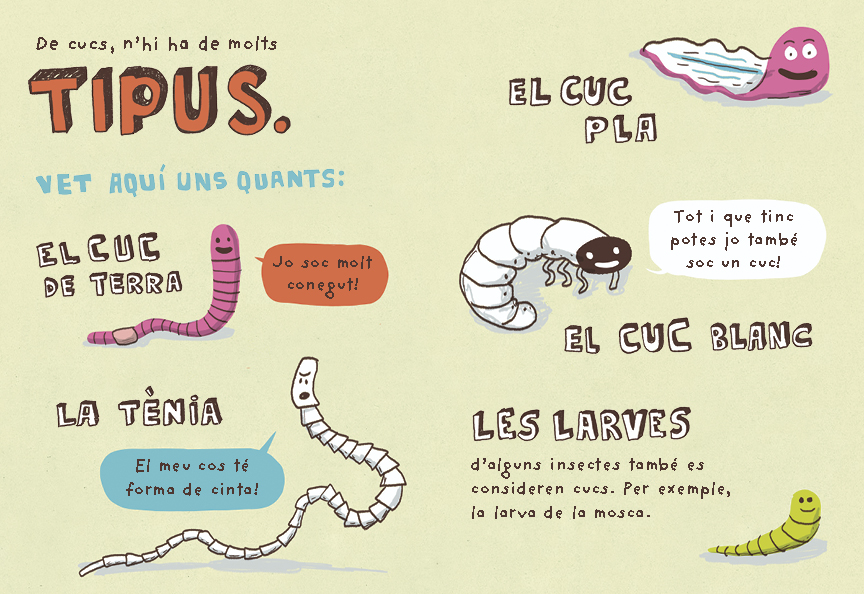 De cucs, n'hi ha de molts
TIPUS.
VET AQUÍ UNS QUANTS:
EL CUC
DE TERRA
Jo soc molt
conegut!
LA TÈNIA
El meu cos té
forma de cinta!
EL CUC
PLA
Tot i que tinc
potes jo també
soc un cuc!
EL CUC BLANC
LES LARVES
d'alguns insectes també es
consideren cucs. Per exemple,
la larva de la mosca.